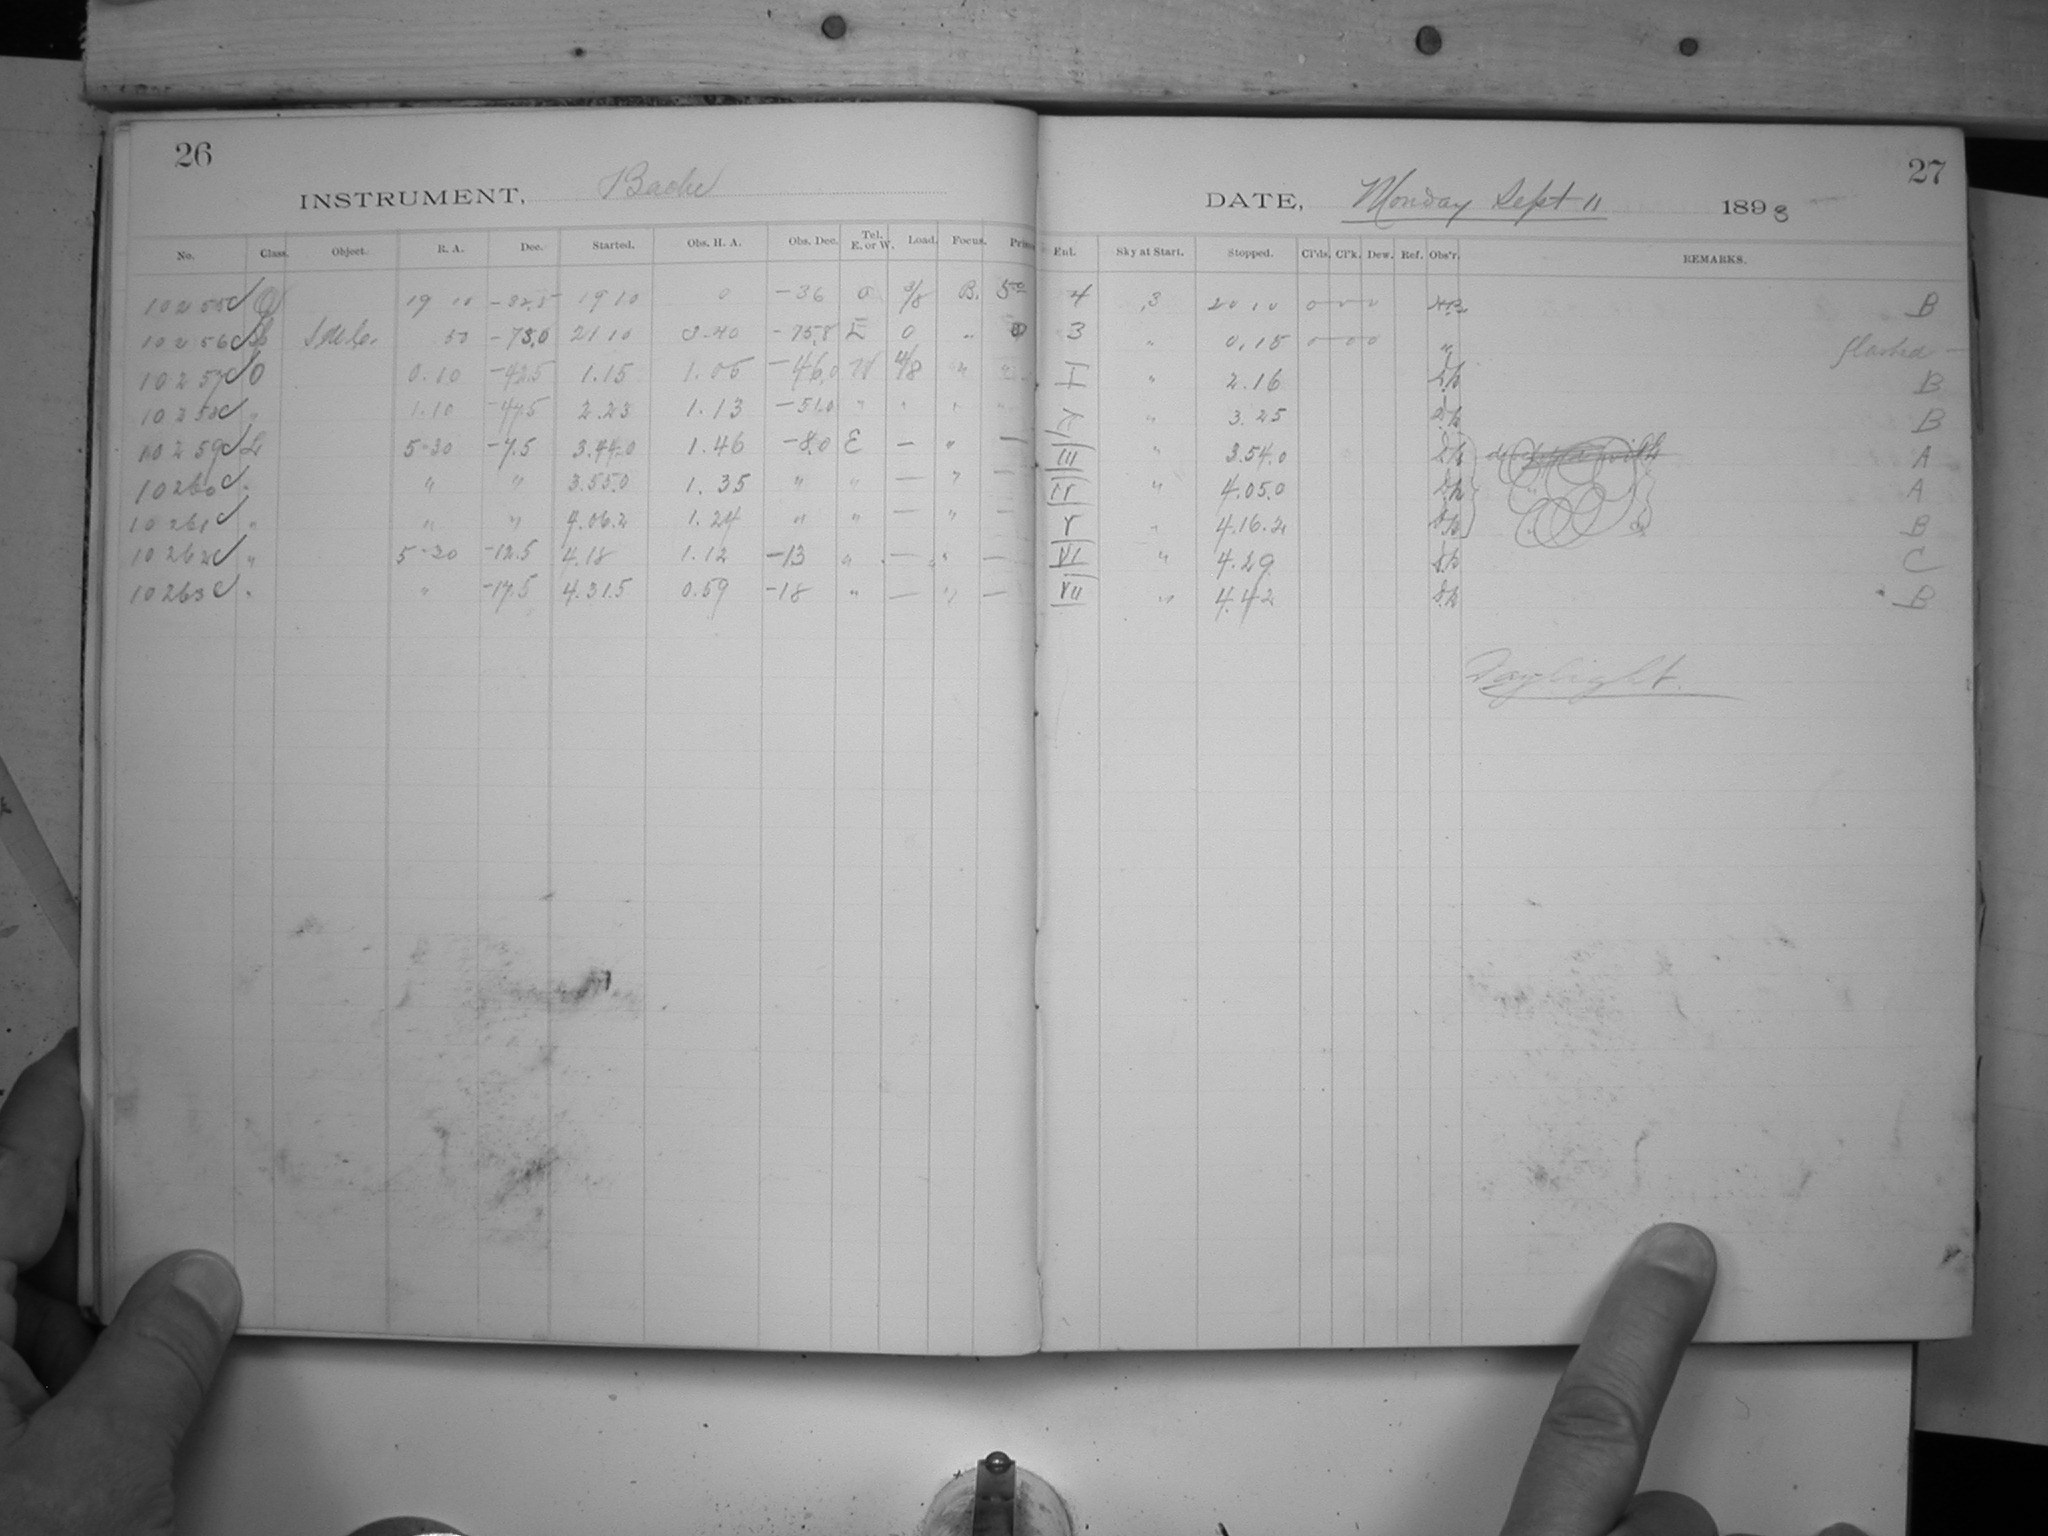 26
INSTRUMENT, Bache
No. Class. Object. R. A. Dec. Started. Obs. H. A. Obs. Dec. Tel. E. or W. Load. Focus.
10255 O 19 10 -32.5 19 10 0 -36 0 3/8 B.
10256 -75.0 21 10 -75.8 E 0 "
10257 O 0.10 -42.5 1.15 1.05 -46.0 W 4/8 "
10258 " 1.10 -47.5 2.23 1.13 -51.0 " " "
10259 5-30 -7.5 3.44.0 1.46 -8.0 E — " —
10260 " " " 3.55.0 1.35 " " — " —
10261 " " " 4.06.2 1.24 " " — " —
10262 " 5-20 -12.5 4.18 1.12 -13 " — " —
10263 " " -17.5 4.31.5 0.59 -18 " — " —
27
DATE, Monday Sept 11 1893
Ent. Sky at Start. Stopped. Cl'ds. Cl'k. Dew. Ref. Obs'r. REMARKS.
4 .3 20 10 0 0 0 B
3 " 0.15 0 0 0 "
I " 2.16 B
" 3.25 B
III " 3.54.0 A
IV " 4.05.0 A
V " 4.16.2 B
VI " 4.29 C
VII " 4.42 B
Daylight.